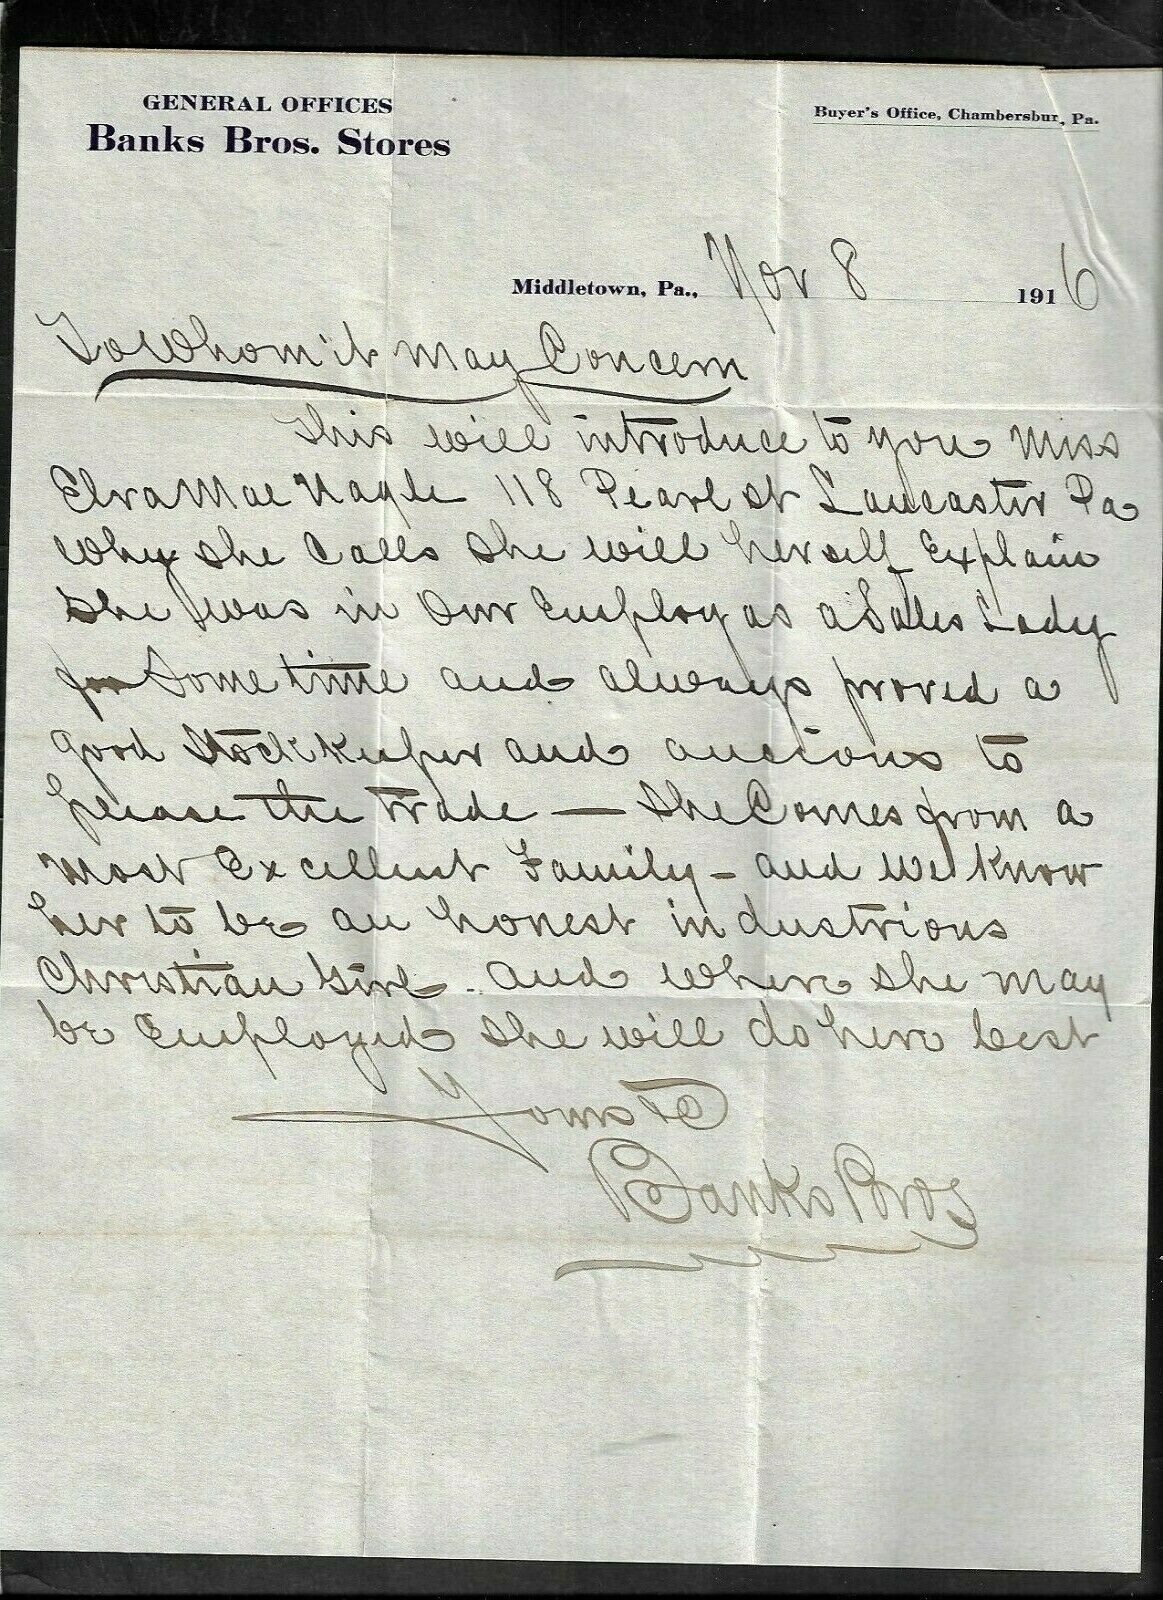 GENERAL OFFICES
Banks Bros. Stores
Buyer's Office, Chambersbur, Pa.
Middletown, Pa., Nov 8 1916
To Whom it May Concern
This will introduce to you Miss
Elva Mae Nagle 118 Pearl st Lancaster Pa
Why she Calls she will herself Explain
She was in Our Employ as a Sales Lady
for Some time and always proved a
good Stock Keeper and ancious to
please the trade — She Comes from a
most Excellent Family - and we Know
her to be an honest industrious
Christian Girl. and where she may
be Employed she will do her best
Yours T
Banks Bros